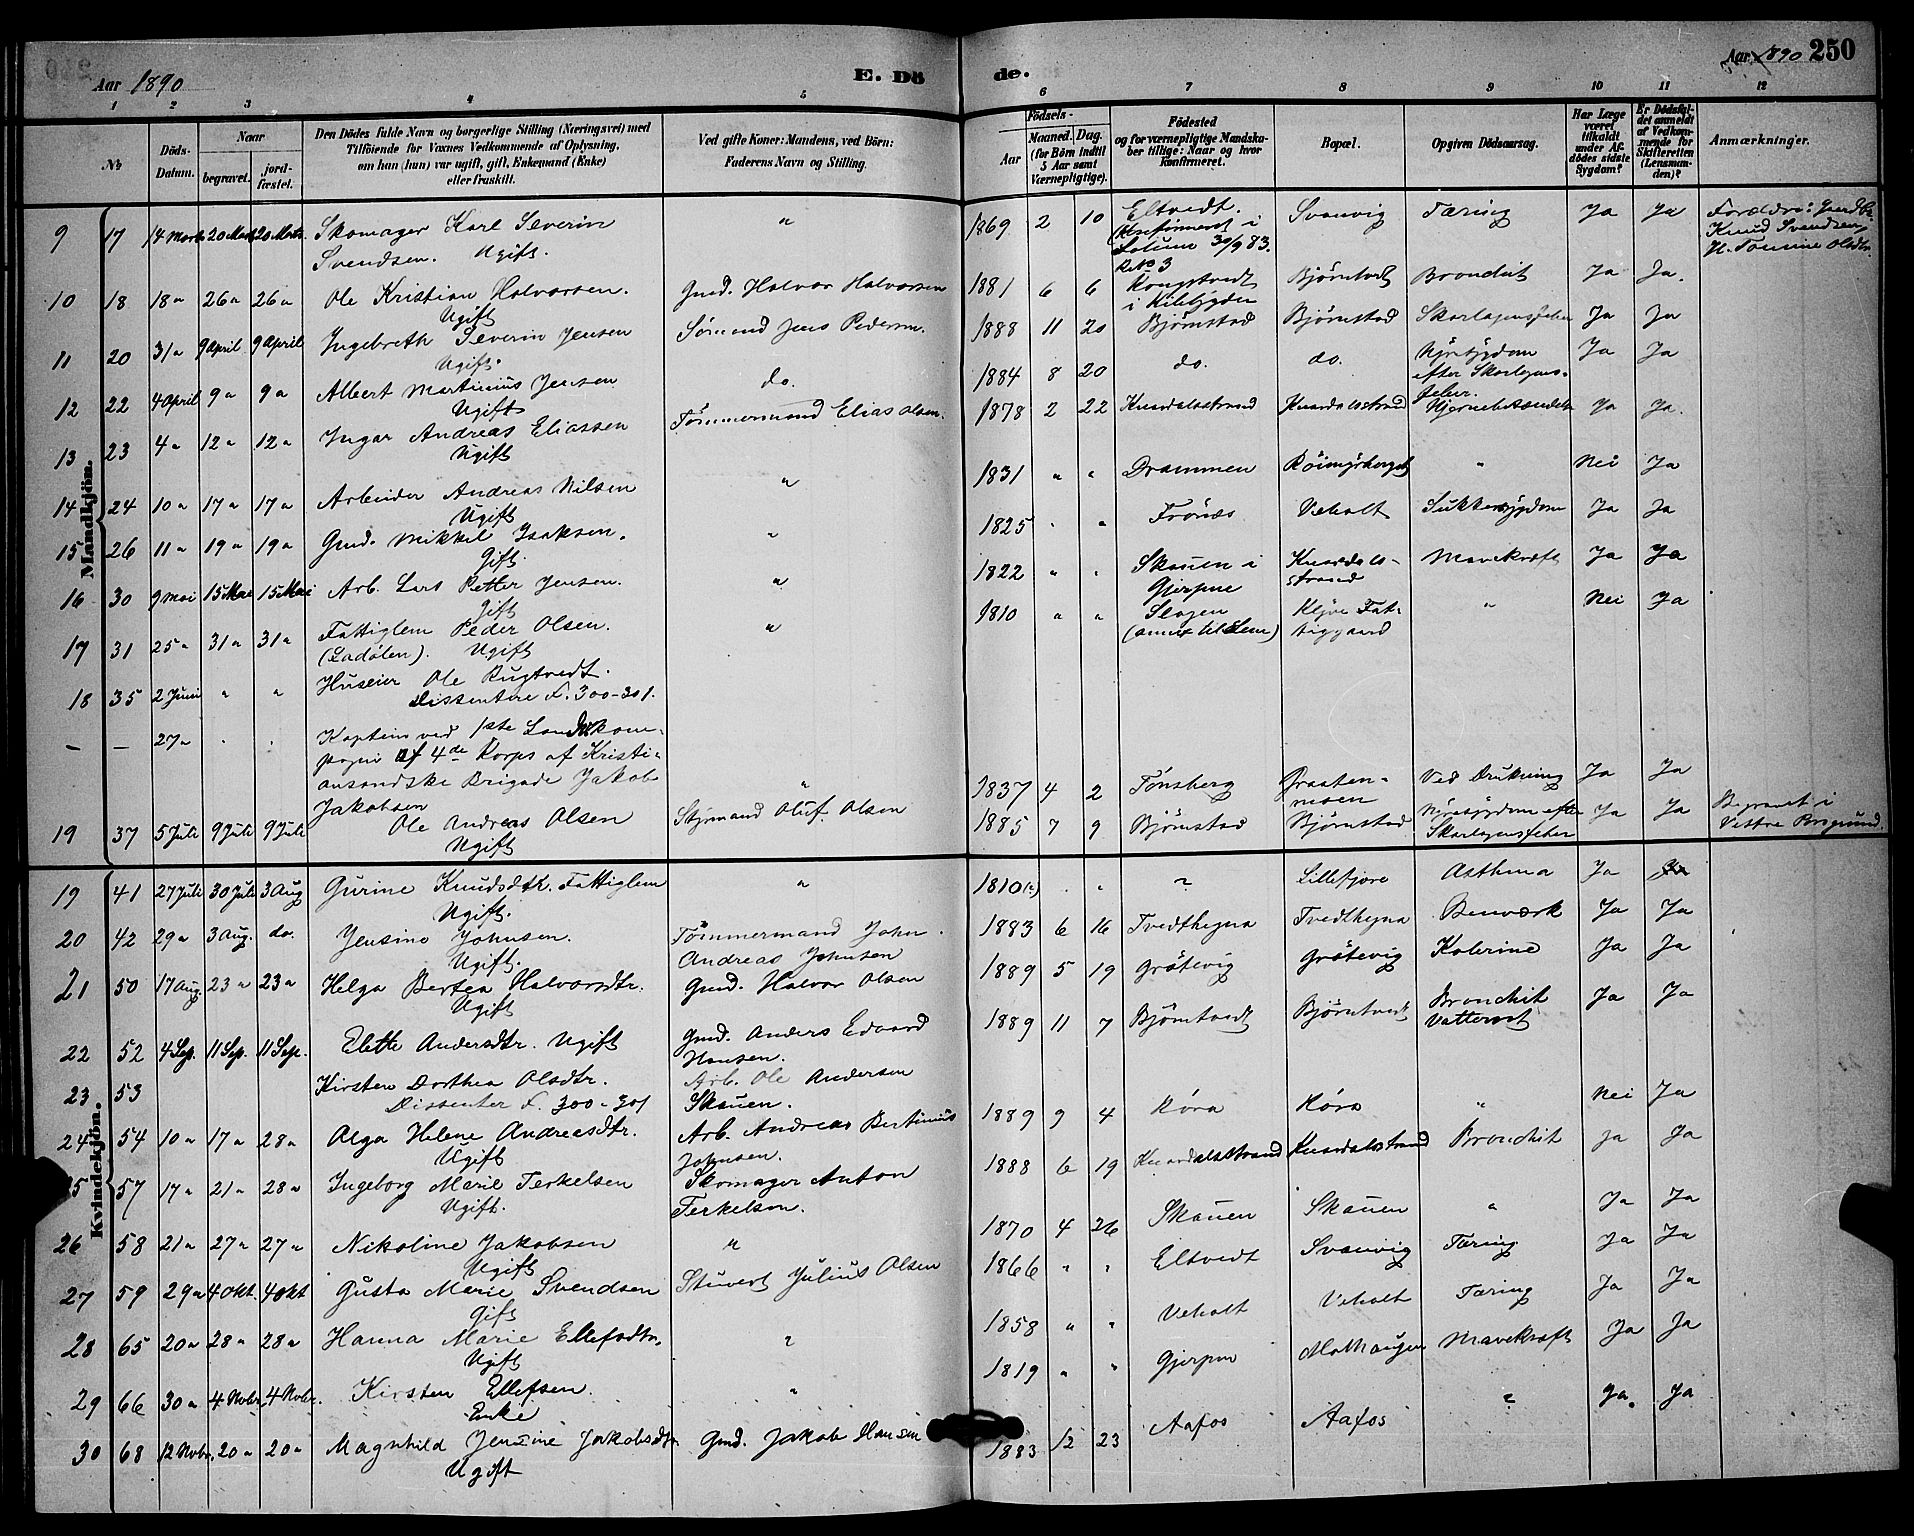 Aar 1890
E. Dö
de.
Aar 1890 250
1 2 3 4 5
6 7 8 9 10 11 12
№
Döds-Datum.
Naar
begravet.
jordfæstet.
Den Dödes fulde Navn og borgerlige Stilling (Næringsvei) med
Tilföiende for Voxnes Vedkommende af Oplysning,
om han (hun) var ugift, gift, Enkemand (Enke)
eller fraskilt.
Ved gifte Koner: Mandens, ved Börn:
Faderens Navn og Stilling.
Födsels-
Aar
Maaned. Dag.
(for Börn indtil
5 Aar samt
Værnepligtige).
Födested
og for værnepligtige Mandskaber tillige: Naar og hvor
konfirmeret.
Bopæl.
Opgiven Dödsaarsag.
Har Læge
været
tilkaldt
under Afdödes sidste
Sygdom?
Er Dödsfaldet anmeldt
af Vedkommende for
Skifteretten
(Lensmanden)?
Anmærkninger.
Mandkjön.
9 17 14 Marts 20 Marts 20 Marts Skomager Karl Severin " 1869 2 10 Eltvedt. Svanvig Tæring Ja Ja
Svendsen. Ugift. (Konfirmeret i Solum 30/9 83. No 3
Knud Svendsen
10 18 18 " 26 " 26 " Ole Kristian Halvorsen. Gmd. Halvor Halvorsen 1881 6 6 Bjørntvedt Bronchit Ja Ja.
Ugift
11 20 31 " 9 April 9 April Ingebreth Severin Jensen Sømand Jens Pedersen. 1888 11 20 Bjørnstad Bjørnstad Skarlagensfeber Ja Ja
Ugift.
12 22 4 April 9 " 9 " Albert Martinius Jensen do. 1884 8 20 do. do. Nyresygdom efter Skarlagensfeber. Ja Ja
Ugift
13 23 4 " 12 " 12 " Ingar Andreas Eliassen Tømmermand Elias Olsen. 1878 2 22 Knardalsstrand Knardalsstrand Hjernebetændelse Ja Ja.
Ugift
14 24 10 " 17 " 17 " Arbeider Andreas Nilsen " 1831 " " Drammen " Nei Ja
Ugift
15 26 11 " 19 " 19 " Gmd. Mikkel Isaksen. " 1825 " " Frönæs Veholt Sukkersygdom Ja Ja
Gift.
16 30 9 Mai 15 Mai 15 Mai Arb. Lars Petter Jensen. " 1822 " " Skauen i Gjerpen Knardalsstrand Mavekræft Ja Ja
Gift
17 31 25 " 31 " 31 " Fattiglem Peder Olsen. " 1810 " " Slagen (annex til Sem) Klyve Fattiggaard " Nei Ja
(Ladölen). Ugift
18 35 2 Juni " " Huseier Ole Rugtvedt.
Dissentere L. 300-301.
— — 27 " " " Kaptein ved 1ste Landvkompagni af 4de Korps af Kristiansandske Brigade Jakob Jakobsen " 1837 4 2 Tønsberg Graatenmoen Ved Drukning Ja Ja
19 37 5 Juli 9 Juli 9 Juli Ole Andreas Olsen Styrmand Oluf Olsen 1885 7 9 Bjørnstad Bjørnstad Nyresygdom efter Skarlagensfeber Ja Ja Begravet i Vestre Porsgrund.
Ugift
Kvindekjön.
19 41 27 Juli 30 Juli 3 Aug Gurine Knudsdtr. Fattiglem " 1810(?) " " ? Lillefjære Asthma Ja
Ugift.
20 42 29 " 3 Aug. do. Jensine Johnsen. Tömmermand John Andreas Johnsen 1883 6 16 Tvedthegna Tvedthegna Benværk Ja Ja
Ugift.
21 50 17 Aug. 23 " 23 " Helga Bertea Halvorsdtr. Gmd. Halvor Olsen 1889 5 19 Grötevig Grötevig Kolerine Ja Ja
Ugift
22 52 4 Sep. 11 Sep. 11 Sep. Elette Andersdtr. Ugift Gmd. Anders Edvard Hansen. 1889 11 7 Bjørntvedt Bjørntvedt Bronchit Ja Ja
23 53 Kirsten Dorthea Olsdtr. Arb. Ole Andersen
Dissenter L. 300-301 Skauen.
24 54 10 " 17 " 28 " Olga Helene Andreasdtr. Arb. Andreas Bertinius Johnsen. 1889 9 4 Röra Röra " Nei Ja
Ugift
25 57 17 " 21 " 28 " Ingeborg Marie Terkelsen Skomager Anton Terkelsen. 1888 6 19 Knardalsstrand Knardalsstrand Bronchit Ja Ja
Ugift.
26 58 21 " 27 " 27 " Nikoline Jakobsen " 1870 4 26 Skauen Skauen " Ja Ja
Ugift
27 59 29 " 4 Okt. 4 Okt Gusta Marie Svendsen Stuvert Julius Olsen 1866 " " Eltvedt Svanvig Tæring Ja Ja
Gift
28 65 20 " 28 " 28 " Hanna Marie Ellefsdtr. " 1858 " " Veholt Veholt Tæring Ja Ja
Ugift
29 66 30 " 4 Nvbr. 4 Nvbr. Kirsten Ellefsen. " 1819 " " Gjerpen Mohaugen Mavekræft Ja Ja
Enke
30 68 12 Nvbr. 20 " 20 " Magnhild Jensine Jakobsdtr. Gmd. Jakob Hansen 1883 12 23 Aafos Aafos " Ja. Ja
Ugift